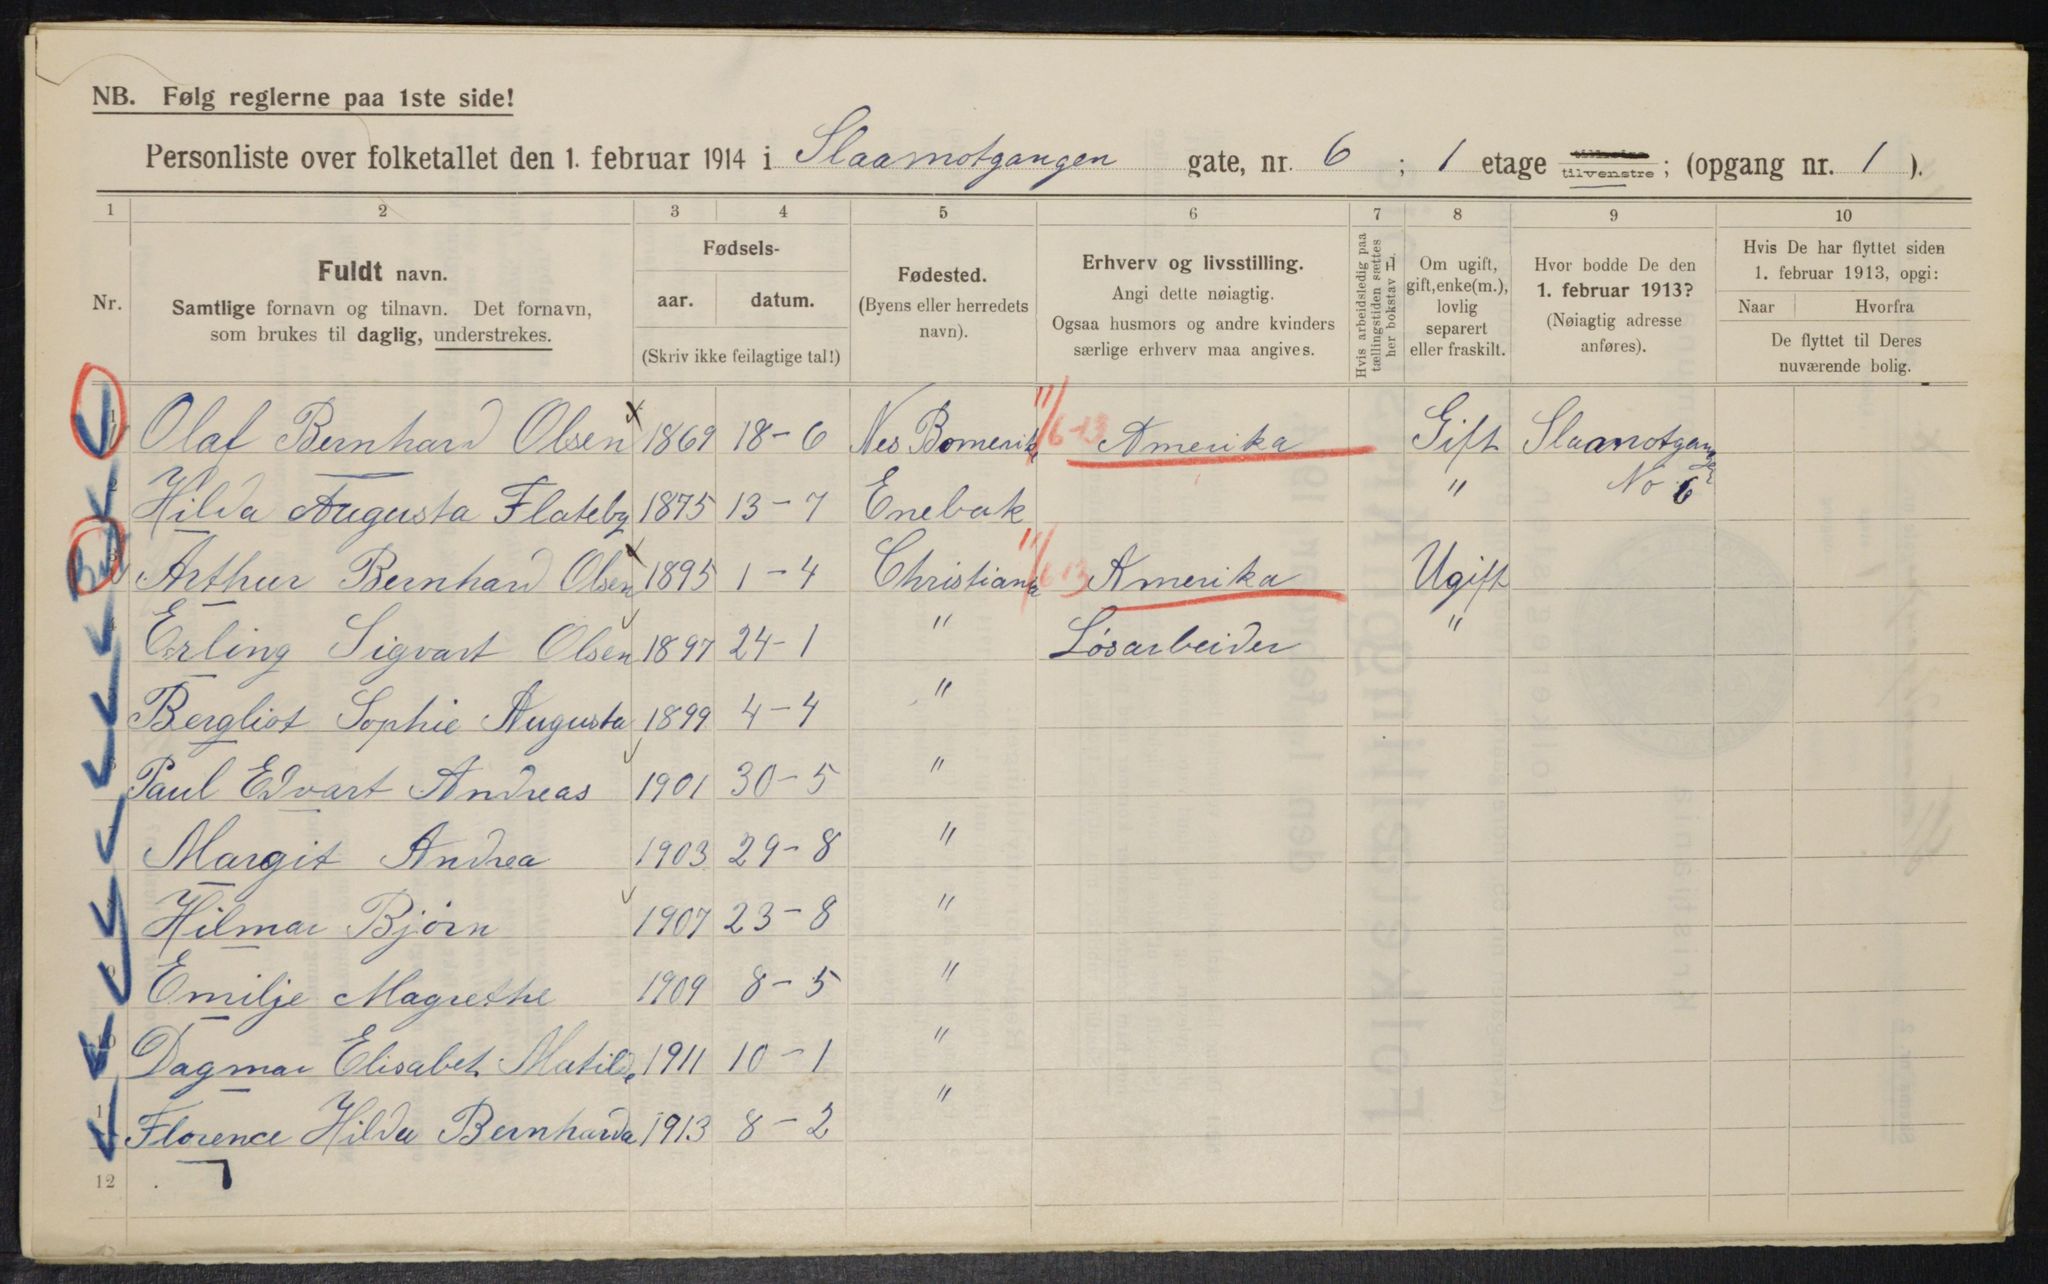 NB. Følg reglerne paa 1ste side!
Personliste over folketallet den 1. februar 1914 i Slaamotgangen gate, nr. 6 ; 1 etage tilvenstre ; (opgang nr. 1 ).
1 2 3 4 5 6 7 8 9 10
Nr.
Fuldt navn.
Samtlige fornavn og tilnavn. Det fornavn,
som brukes til daglig, understrekes.
Fødsels-
aar. datum.
(Skriv ikke feilagtige tal!)
Fødested.
(Byens eller herredets
navn).
Erhverv og livsstilling.
Angi dette nøiagtig.
Ogsaa husmors og andre kvinders
særlige erhverv maa angives.
Hvis arbeidsledig paa
tællingstiden sættes
her bokstav L.
Om ugift,
gift, enke(m.),
lovlig
separert
eller fraskilt.
Hvor bodde De den
1. februar 1913?
(Nøiagtig adresse
anføres).
Hvis De har flyttet siden
1. februar 1913, opgi:
Naar Hvorfra
De flyttet til Deres
nuværende bolig.
1 Olaf Bernhard Olsen 1869 18-6 Nes Romerike 11/6-13 Amerika Gift Slaamotgangen
Hilda Augusta Flateby 1875 13-7 Enebak " No 6
3 Arthur Bernhard Olsen 1895 1-4 Christiania 11/6 13 Amerika Ugift
Erling Sigvart Olsen 1897 24-1 " Løsarbeider "
Bergliot Sophie Augusta 1899 4-4 "
Paul Edvart Andreas 1901 30-5 "
Margit Andrea 1903 29-8 "
Hilmar Bjørn 1907 23-8 "
9 Emilje Magrethe 1909 8-5 "
10 Dagmar Elisabet Matilde 1911 10-1 "
Florence Hilda Bernharda 1913 8-2 "
12